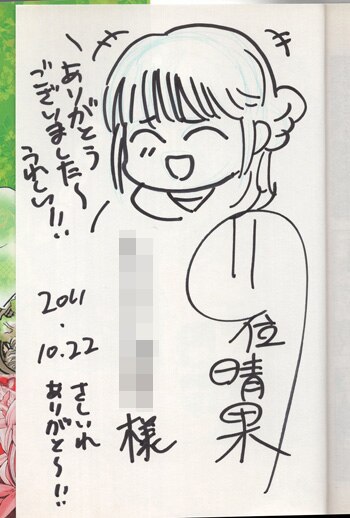 ありがとう
ございました～
うれしい!!
位
晴果
様
2011
.
10.22
さしいれ
ありがと～!!